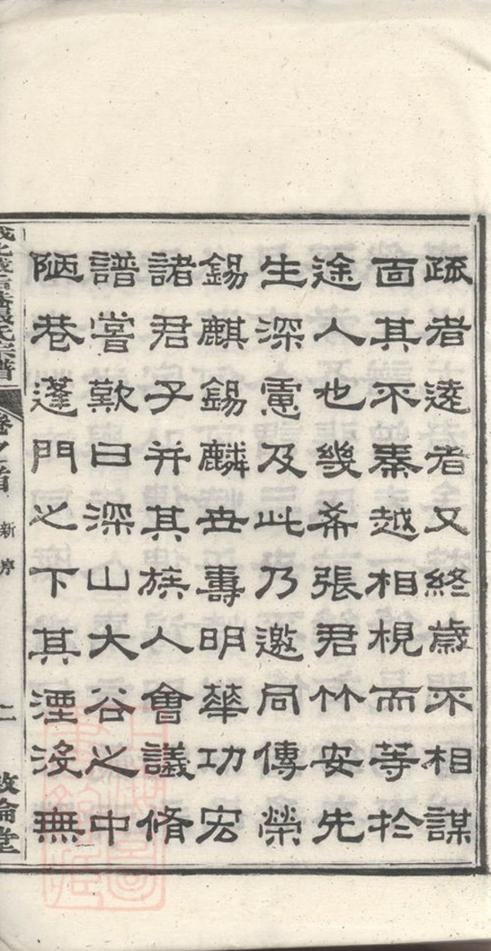 疏者遠者又終歲不相謀
固其不秦越相視而等於
途人也幾希張君竹安先
生深慮及此乃邀同傳榮
錫麒錫麟世壽明華功宏
諸君子并其族人會議脩
譜嘗歎曰深山大谷之中
陋巷蓬門之下其湮沒無
卷之首 新序 二 敦倫堂